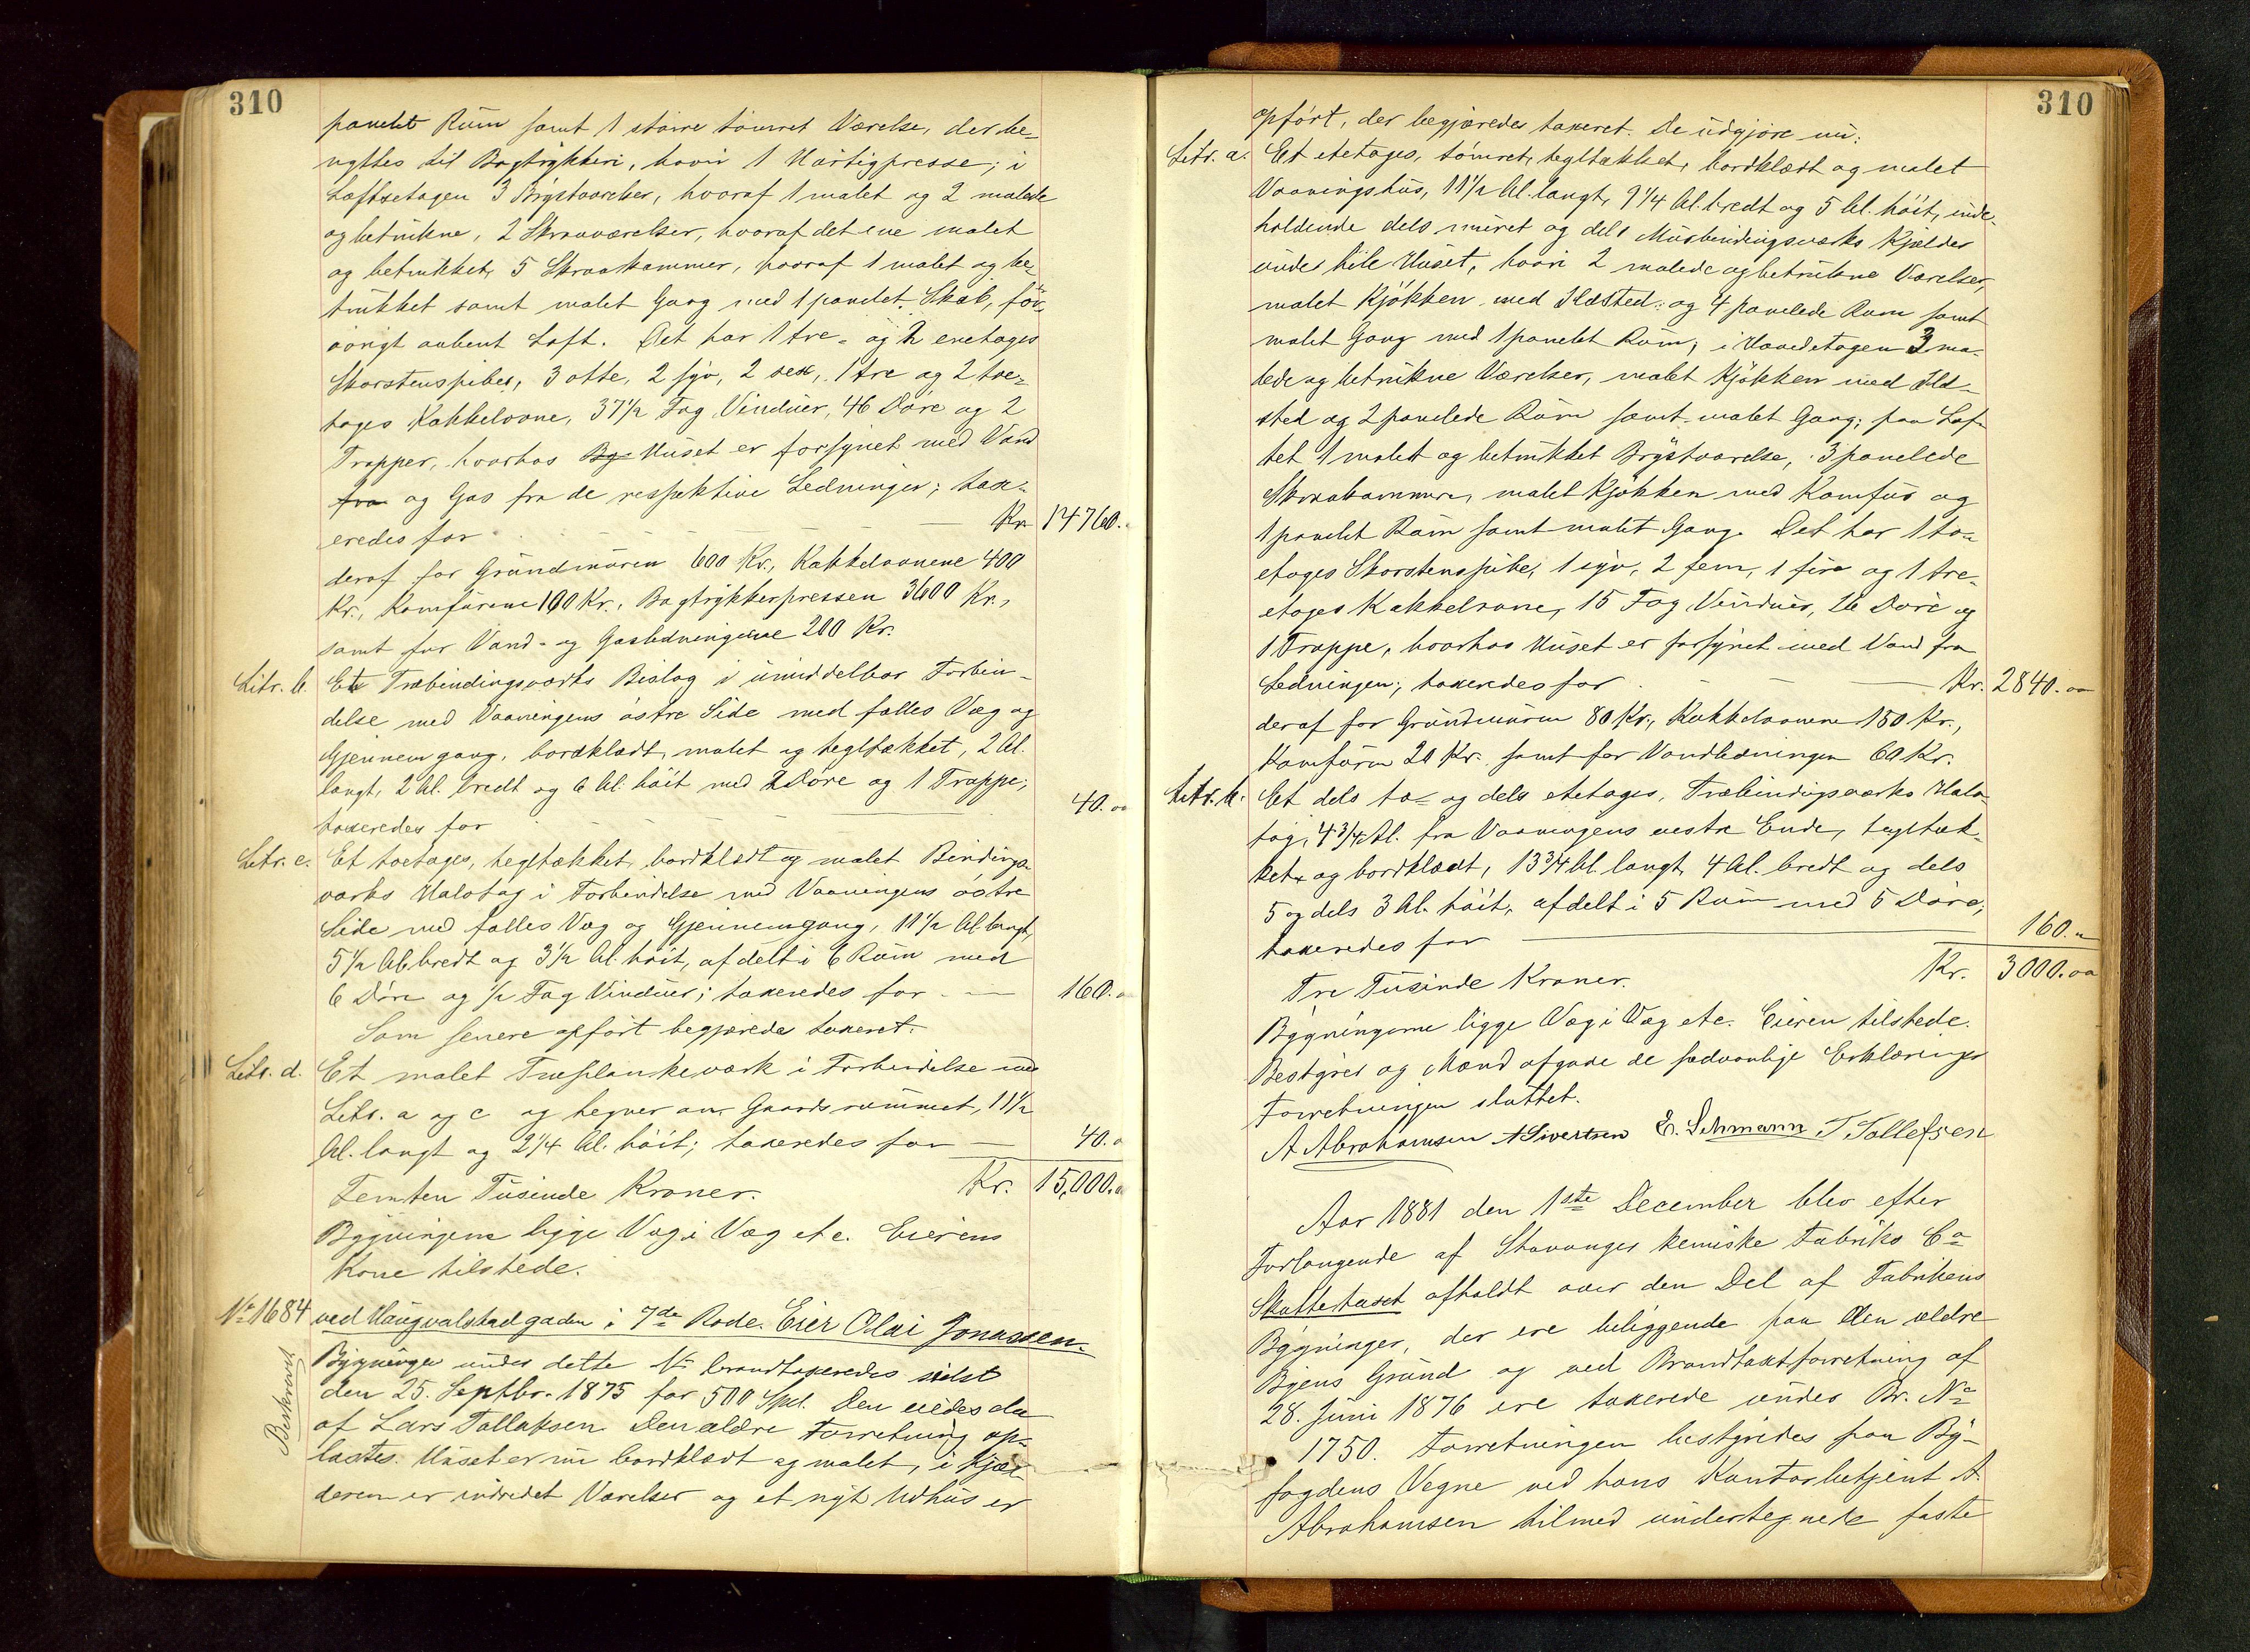 310
panelet Rum samt 1 større tømret Værelse, der be-
nyttes til Bogtrykkeri, hvori 1 Hurtigpresse; i
Loftsetagen 3 Brystværelser, hvoraf 1 malet og 2 malede
og betrukne, 2 Skraaværelser, hvoraf det ene malet
og betrukket, 5 Skraakammer, hvoraf 1 malet og be-
trukket samt malet Gang med 1 panelet Skab, for-
øvrigt aabent Loft. Det har 1 tre- og 2 enetages
Skorstenspiber, 3 otte, 2 syv, 2 sex, 1 tre og 2 toe-
tages Kakkelovne, 37½ Fag Vinduer, 46 Døre og 2
Trapper, hvorhos By Huset er forsynet med Vand
fra og Gas fra de respektive Ledninger; tax-
eredes for Kr. 14760.
deraf for Grundmuren 600 Kr., Kakkelovnene 400
Kr., Komfurene 100 Kr., Bogtrykkerpressen 3600 Kr.,
samt for Vand- og Gasledningerne 200 Kr.
Litr. b. Et Træbindingsværks Bislag i umiddelbar Forbin-
delse med Vaaningens østre Side med fælles Væg og
Gjennemgang, bordklædt, malet og tegltækket, 2 Al.
langt, 2 Al. bredt og 6 Al. høit med 2 Døre og 1 Trappe;
taxeredes for 40.00
Litr. c. Et toetages, tegltækket, bordklædt og malet Bindings-
værks Halvtag i Forbindelse med Vaaningens østre
Side med fælles Væg og Gjennemgang, 11½ Al. langt,
5½ Al. bredt og 3½ Al. høit, afdelt i 6 Rum med
6 Døre og ½ Fag Vinduer; taxeredes for 160.
Som senere opført begjæredes taxeret:
Litr. d. Et malet Træplankeværk i Forbindelse med
Litr. a og c og hegner om Gaardsrummet, 11½
Al. langt og 2¼ Al. høit; taxeredes for 40.
Femten Tusinde Kroner. Kr. 15,000.
Bygningerne ligge Væg i Væg etc. Eierens
Kone tilstede.
No 1684 ved Haugvalstadgaden i 7de Rode. Eier Olai Jonassen.
Beskrevet
Bygningen under dette No brandtaxeredes sidst
den 25. Septbr. 1875 for 500 Spd. Den eiedes da
af Lars Tallaksen. Den ældre Forretning op-
læstes. Huset er nu bordklædt og malet, i Kjæl-
deren er indredet Værelser og et nyt Udhus er
310
opført, der begjæredes taxeret. De udgjøre nu:
Litr. a. Et etetages, tømret, tegltækket, bordklædt og malet
Vaaningshus, 11½ Al. langt, 9¼ Al. bredt og 5 Al. høit, inde-
holdende dels muret og dels Murbindingsværks Kjælder
under hele Huset, hvori 2 malede og betrukne Værelser,
malet Kjøkken med Ildsted og 4 panelede Rum samt
malet Gang med 1 panelet Rum; i Hovedetagen 3 ma-
lede og betrukne Værelser, malet Kjøkken med Ild-
sted og 2 panelede Rum samt malet Gang; paa Lof-
tet 1 malet og betrukket Brystværelse, 3 panelede
Skraakammere, malet Kjøkken med Komfur og
1 panelet Rum samt malet Gang. Det har 1 to-
etages Skorstenspibe, 1 syv, 2 fem, 1 fire og 1 tre-
etages Kakkelovne, 15 Fag Vinduer, 26 Døre og
1 Trappe, hvorhos Huset er forsynet med Vand fra
Ledningen; taxeredes for Kr. 2840.00
deraf for Grundmuren 80 Kr., Kakkelovnene 150 Kr.,
Komfuren 20 Kr. samt for Vandledningen 60 Kr.
Litr. b. Et dels to- og dels etetages, Træbindingsværks Halv-
tag, 4¾ Al. fra Vaaningens vestre Ende, tegltæk-
ket og bordklædt, 13¾ Al. langt, 4 Al. bredt og dels
5 og dels 3 Al. høit, afdelt i 5 Rum med 5 Døre;
taxeredes for 160.
Tre Tusinde Kroner. Kr. 3000.00
Bygningerne ligge Væg i Væg etc. Eieren tilstede.
Bestyrer og Mænd afgave de sædvanlige Erklæringer
Forretningen sluttet.
A Abrahamsen A Sivertsen E. Lehmann T Tollefsen
Aar 1881 den 1ste December blev efter
Forlangende af Stavanger kemiske Fabriks Co
Skattetaxt afholdt over den Del af Fabrikens
Bygninger, der ere beliggende paa den ældre
Byens Grund og ved Brandtaxtforretning af
28. Juni 1876 ere taxerede under Br. No
1750. Forretningen bestyredes paa By-
fogdens Vegne ved hans Kontorbetjent A.
Abrahamsen tilmed undertegnede faste